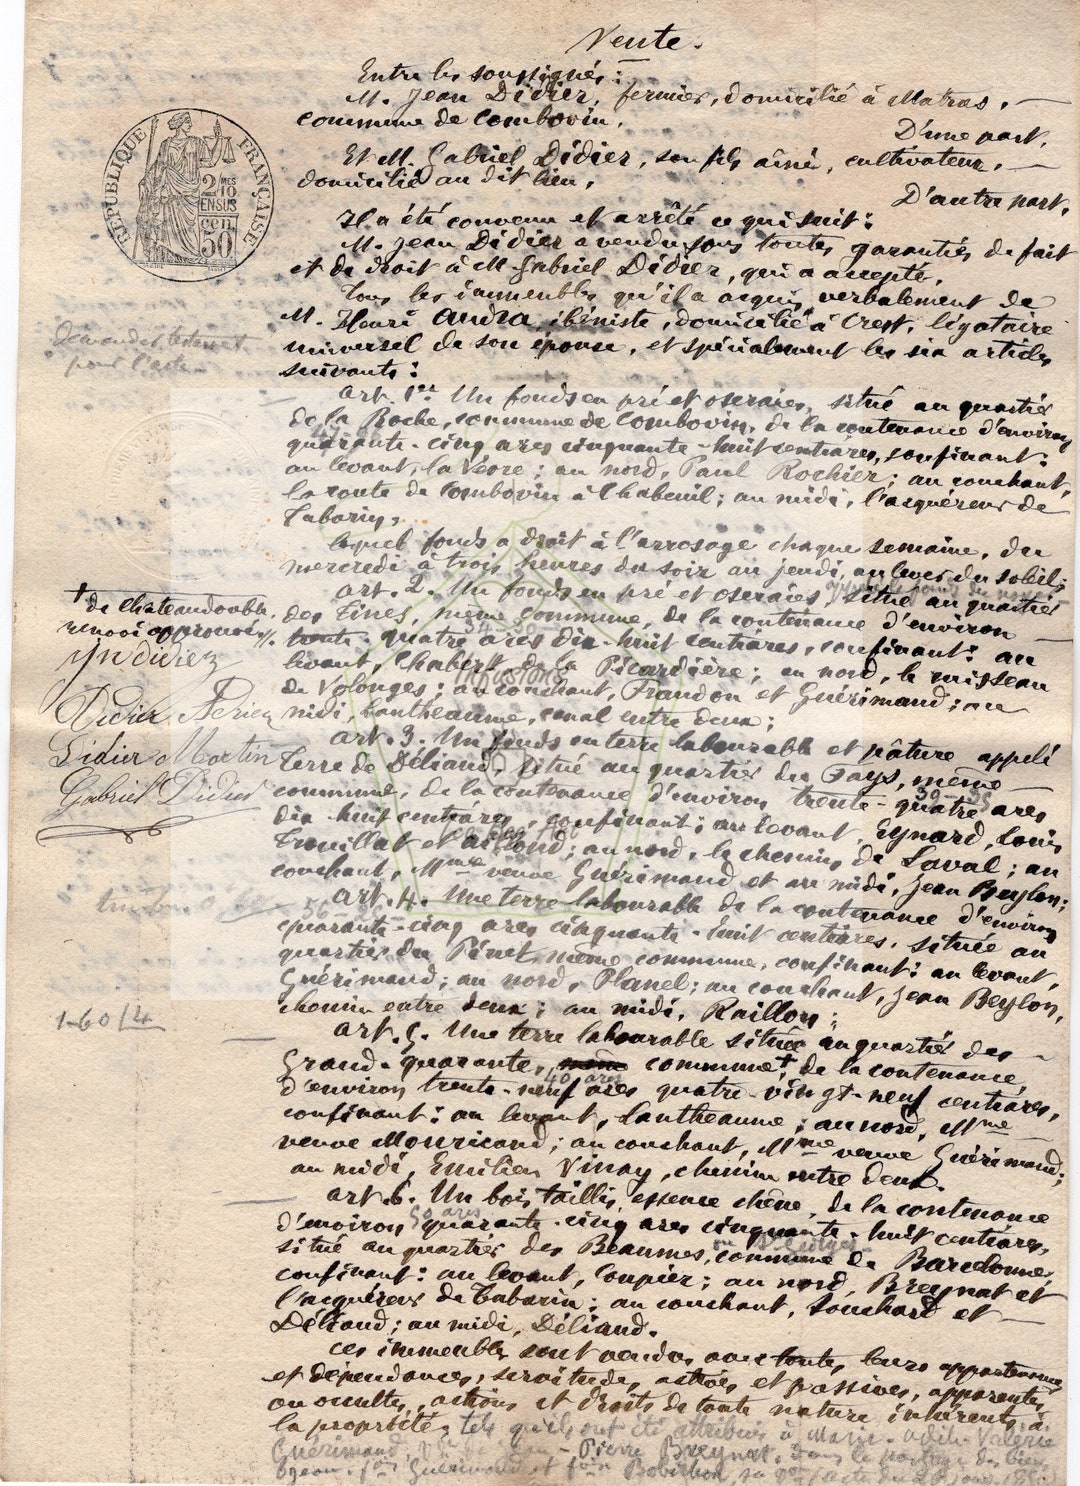 Vente.
Entre les soussignés :
M. Jean Didier, fermier, domicilié à Matras,
commune de Combovin,
D'une part,
Et M. Gabriel Didier, son fils aîné, cultivateur,
domicilié au dit lieu,
D'autre part,
Il a été convenu et arrêté ce qui suit :
M. Jean Didier a vendu, sous toutes garanties de fait
et de droit à M. Gabriel Didier, qui a accepté,
Tous les immeubles qu'il a acquis verbalement de
M. Henri Andra, ibéniste, domicilié à Crest, légataire
universel de son épouse, et spécialement les six articles
suivants :
art. 1er Un fonds en pré et oseraies, situé au quartier
de la Roche, commune de Combovin, de la contenance d'environ
quarante-cinq ares cinquante-huit centiares, confinant :
au levant, la Véore ; au nord, Paul Rochier ; au couchant,
la route de Combovin à Chabeuil ; au midi, l'acquéreur de
Tabarin,
lequel fonds a droit à l'arrosage chaque semaine, du
mercredi à trois heures du soir au jeudi, au lever du soleil ;
art. 2. Un fonds en pré et oseraies, situé au quartier
des Fines, même commune, de la contenance d'environ
trente-quatre ares dix-huit centiares, confinant : au
levant, Chabert de la Picardière ; au nord, le ruisseau
de Volonges ; au couchant, Frandon et Guérimand ; au
midi, Lantheaume, canal entre deux ;
art. 3. Un fonds en terre labourable et pâture appelé
Terre de Déliaud, situé au quartier du Fays, même
commune, de la contenance d'environ trente-quatre ares
dix-huit centiares, confinant : au levant, Eynard, Louis
Trouillat et ; au nord, le chemin de Laval ; au
couchant, Mme veuve Guérimand et au midi, Jean Beylon ;
art. 4. Une terre labourable de la contenance d'environ
quarante-cinq ares cinquante-huit centiares, située au
quartier du Pinet, même commune, confinant : au levant,
Guérimand ; au nord, Planel ; au couchant, Jean Beylon,
chemin entre deux ; au midi, Raillon ;
art. 5. Une terre labourable située au quartier des
Grand-quarante, même commune +, de la contenance
d'environ trente-neuf ares quatre-vingt-neuf centiares,
40 ares
confinant : au levant, Lantheaume ; au nord, Mme
veuve Mouricand ; au couchant, Mme veuve Guérimand ;
au midi, Emilien Vinay, chemin entre deux.
art. 6. Un bois taillis, essence chêne, de la contenance
50 ares
d'environ quarante-cinq ares cinquante-huit centiares,
situé au quartier des Beaumes, commune de Barcelonne,
confinant : au levant, Coupier ; au nord, Breynat et
l'acquéreur de Tabarin ; au couchant, Souchard et
Déliaud ; au midi, Déliaud.
Ces immeubles sont vendus avec toutes leurs appartenances
et dépendances, servitudes, actives et passives, apparentes
ou occultes, actions et droits de toute nature inhérents à
la propriété, tels qu'ils ont été attribués à Marie-Odile-Valérie
Guérimand, Pierre Breynat, dans le partage des biens
RÉPUBLIQUE FRANÇAISE
2/10
EN SUS
50
cen
pour l'acte
+ de Chateaudouble
renvoi approuvé
Jn didiez
Didier
Didier Martin
Gabriel Didier
infusions
1-60/4